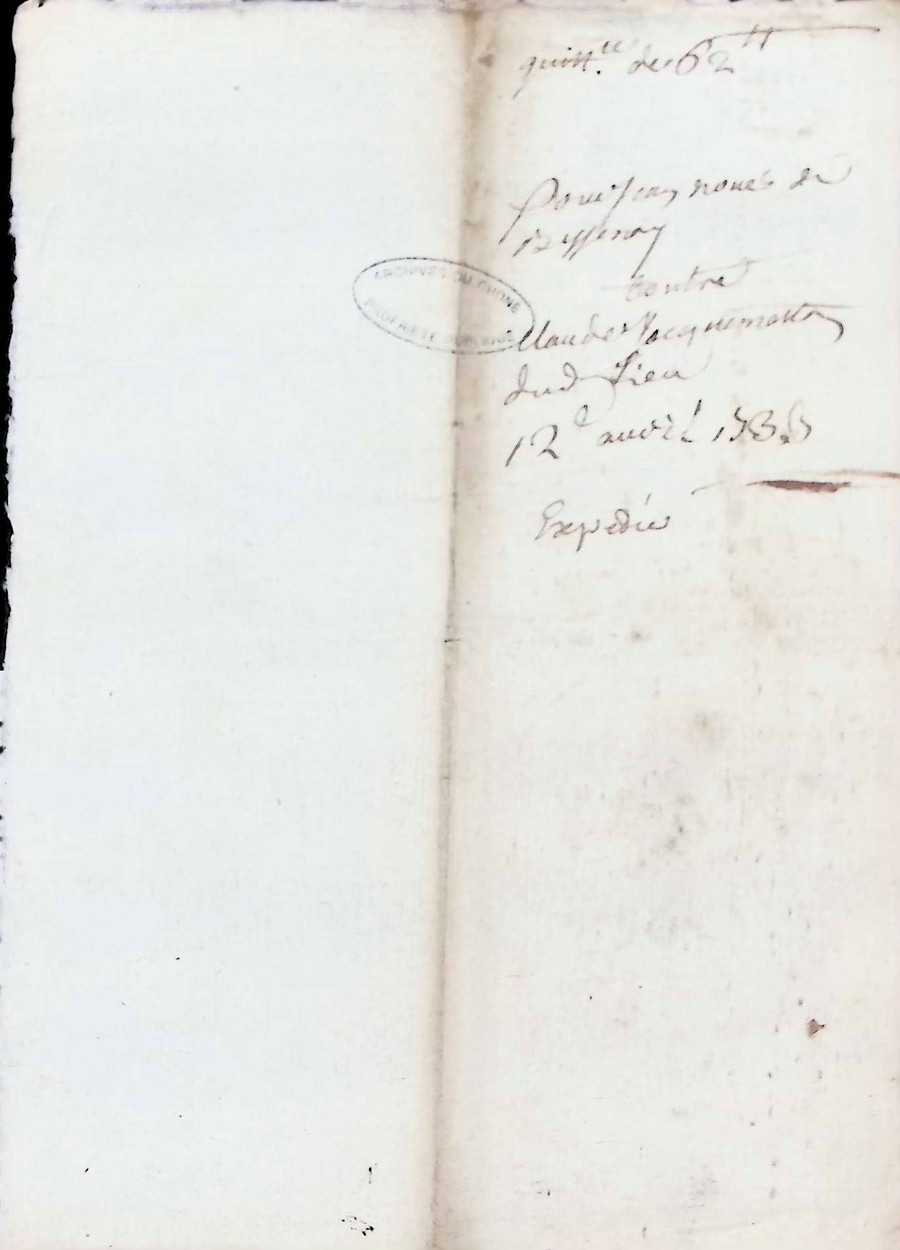 quitt.ce de 62 ₶
Pour Jean noués de
Bessenay
Contre
Claude Jacquemetton
dud Lieu
12e avril
Expediée
ARCHIVES DU RHONE
PROPRIÉTÉ PUBLIQUE